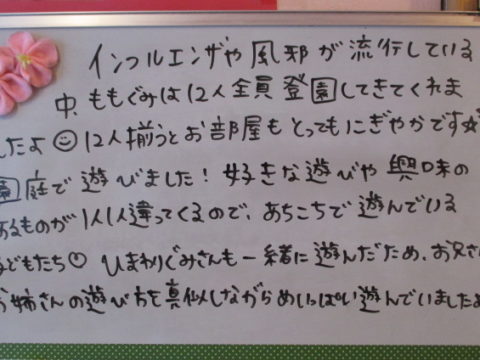 インフルエンザや風邪が流行している
中、ももぐみは12人全員登園してきてくれま
したよ☺12人揃うとお部屋もとってもにぎやかです☆
園庭で遊びました!好きな遊びや興味の
あるものが1人1人違ってくるので、あちこちで遊んでいる
子どもたち♡ ひまわりぐみさんも一緒に遊んだため、お兄さん
お姉さんの遊び方を真似しながらめいっぱい遊んでいましたよ